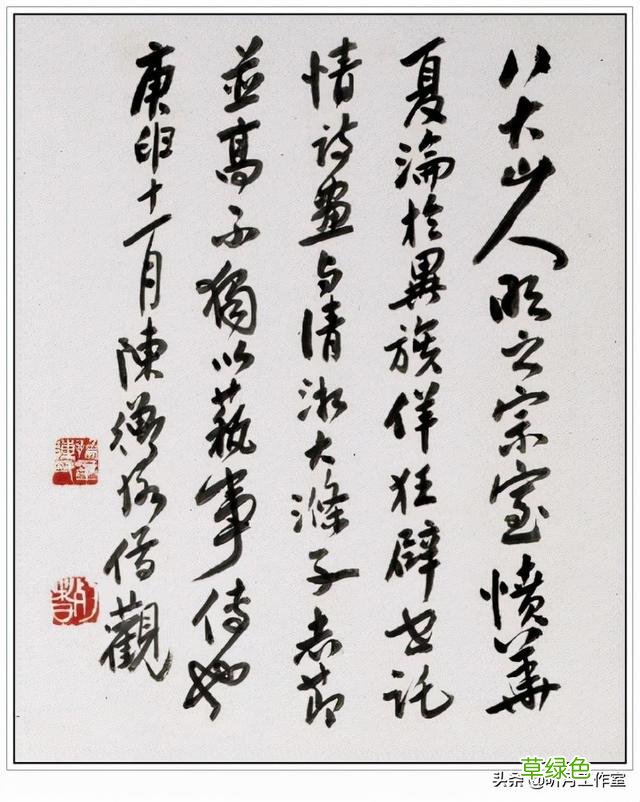 八大山人明之宗室憤華
夏淪於異族佯狂辟世託
情詩畫与清湘大滌子志節
並高不獨以蓺事傳也
庚申十一月陳衡恪借觀
草绿色
头条 @明月工作室